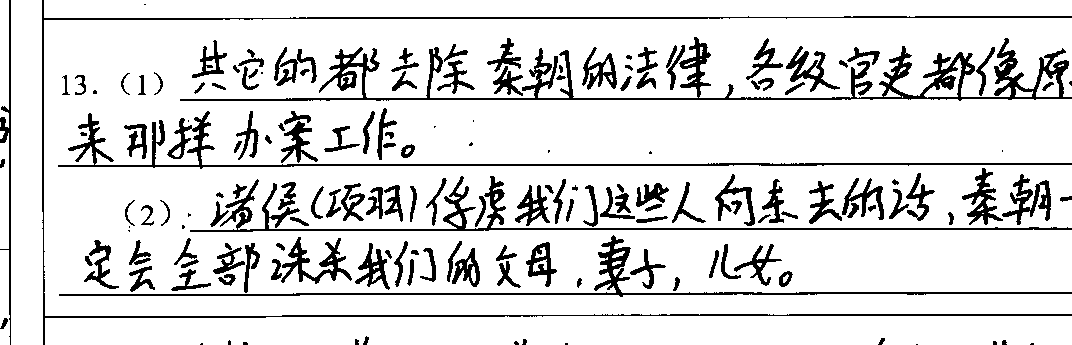 13.（1）其它的都去除秦朝的法律,各级官吏都像原
来那样办案工作。
（2）：诸侯(项羽)俘虏我们这些人向东去的话,秦朝一
定会全部诛杀我们的父母,妻子,儿女。